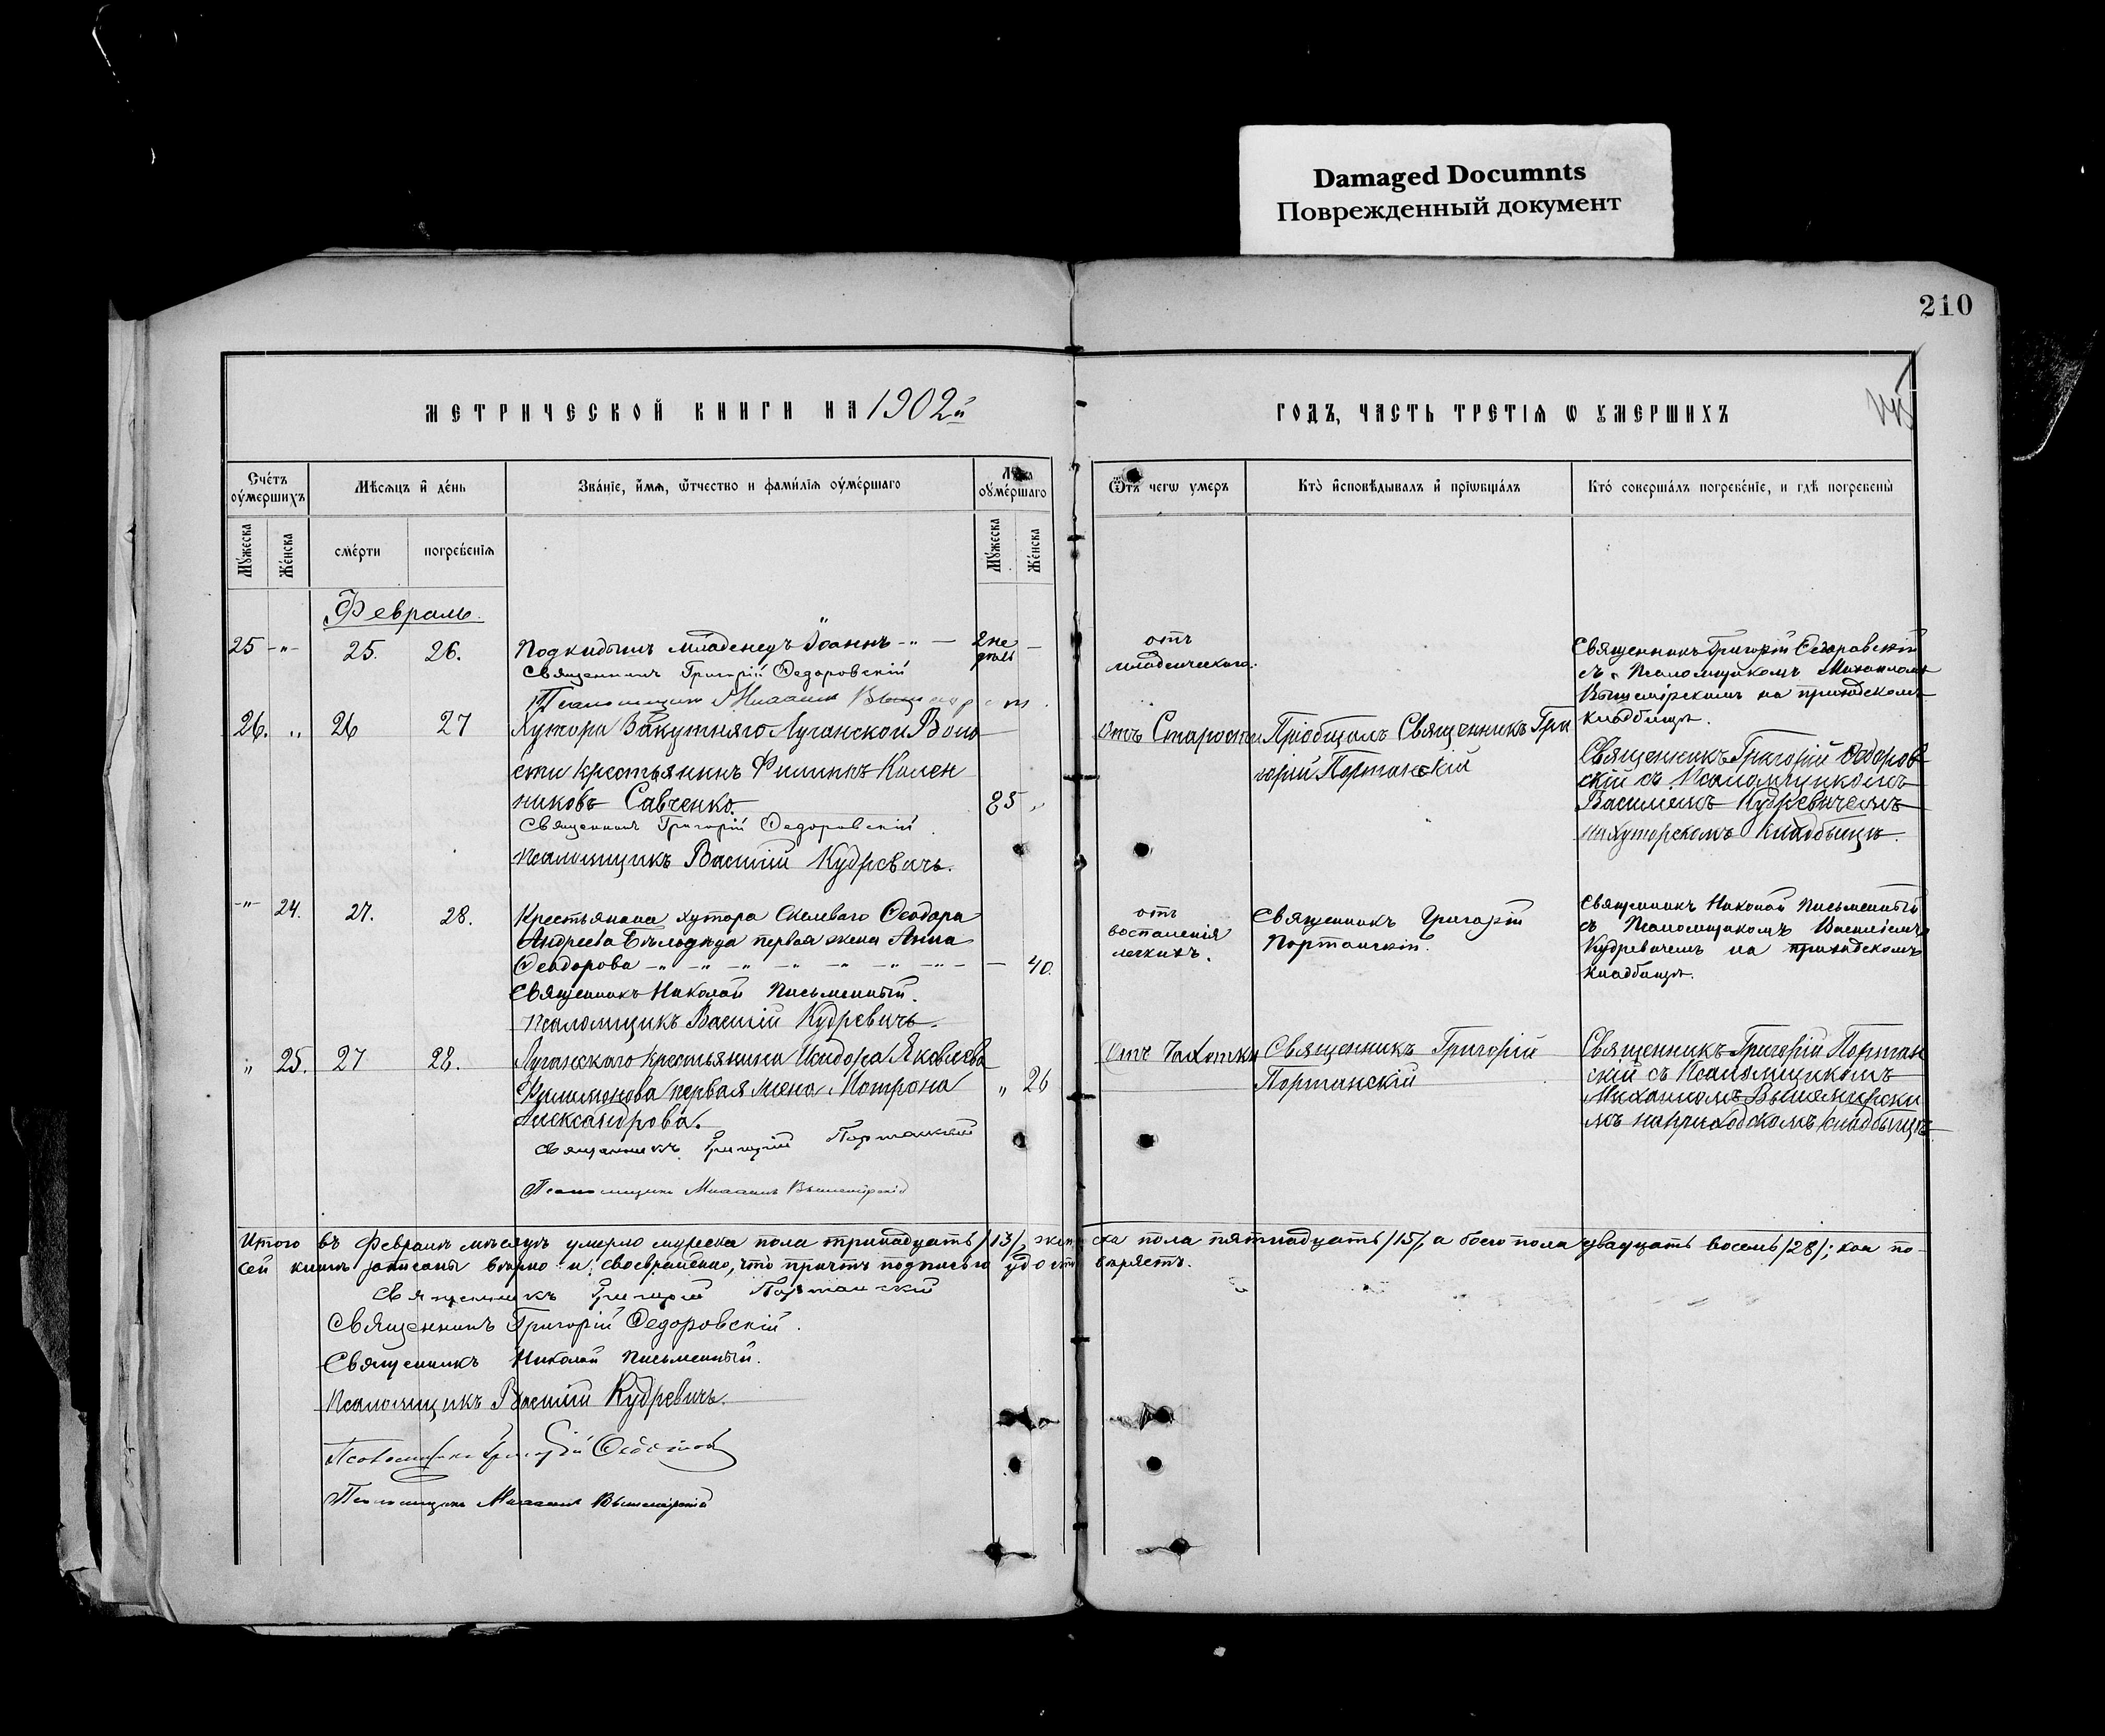 Damaged Documnts
Поврежденный документ
210
МЕТРИЧЕСКОЙ КНИГИ НА 1902й
ГОДЪ, ЧАСТЬ ТРЕТІѦ Ѡ УМЕРШИХЪ
Счетъ оумершихъ
Мѣсѧцъ и день
Званіе, имѧ, ѿчество и фамиліѧ оумершаго
Лѣта оумершаго
Ѿъ чегѡ умеръ
Кто исповѣдывалъ и пріѡбщалъ
Кто совершалъ погребеніе, и гдѣ погребены
Мужеска
Женска
смерти
погребеніѧ
Мужеска
Женска
Февраль.
25 -"- 25. 26. Подкидышъ младенецъ Іоаннъ -"- — 2 не дѣли —
Священникъ Григорій Ѳедоровскій
Псаломщикъ Михаилъ
отъ
младенческаго.
Священникъ Григорій Ѳедоровскій
съ Псаломщикомъ Михаиломъ
Вышемірскимъ на приходскомъ
кладбищѣ.
26. " 26 27 Хутора Закутняго Луганской Воло
сти крестьянинъ Филиппъ Кален
никовъ Савченко. 85 "
Священникъ Григорій Ѳедоровскій
Псаломщикъ Василій Кудревичъ.
Отъ Старости
Пріобщалъ Священникъ Гри
горій Портанскій
Священникъ Григорій Ѳедоров
скій съ Псаломщикомъ
Василіемъ Кудревичемъ
на хуторскомъ кладбищѣ.
-"- 24. 27. 28. Крестьянина хутора Скелеваго Ѳеодора
Андреева первая жена Анна
Ѳеодорова -"- -"- -"- -"- -"- -"- -"- — 40.
Священникъ Николай Письменный.
Псаломщикъ Василій Кудревичъ.
отъ
воспаленія
легкихъ.
Священникъ Григорій
Портанскій.
Священникъ Николай Письменный
съ Псаломщикомъ Василіемъ
Кудревичемъ на приходскомъ
кладбищѣ.
" 25. 27 28. Луганскаго крестьянина Исидора Яковлева
Филимонова первая жена Матрона " 26
Александрова.
Священникъ Григорій Портанскій
Псаломщикъ Михаилъ Вышемірскій
Отъ Чахотки
Священникъ Григорій
Портанскій
Священникъ Григорій Портан
скій съ Псаломщикомъ
Михаиломъ Вышемірски
мъ на приходскомъ кладбищѣ
Итого въ Февралѣ мѣсяцѣ умерло мужеска пола тринадцать /13/, жен ска пола пятнадцать /15/, а обоего пола двадцать восемь /28/; кои по-
сей книгѣ записаны вѣрно и своевременно, что причтъ подписью удосто вѣряетъ.
Священникъ Григорій Портанскій
Священникъ Григорій Ѳедоровскій.
Священникъ Николай Письменный.
Псаломщикъ Василій Кудревичъ.
Псаломщикъ Григорій
Псаломщикъ Михаилъ Вышемірскій